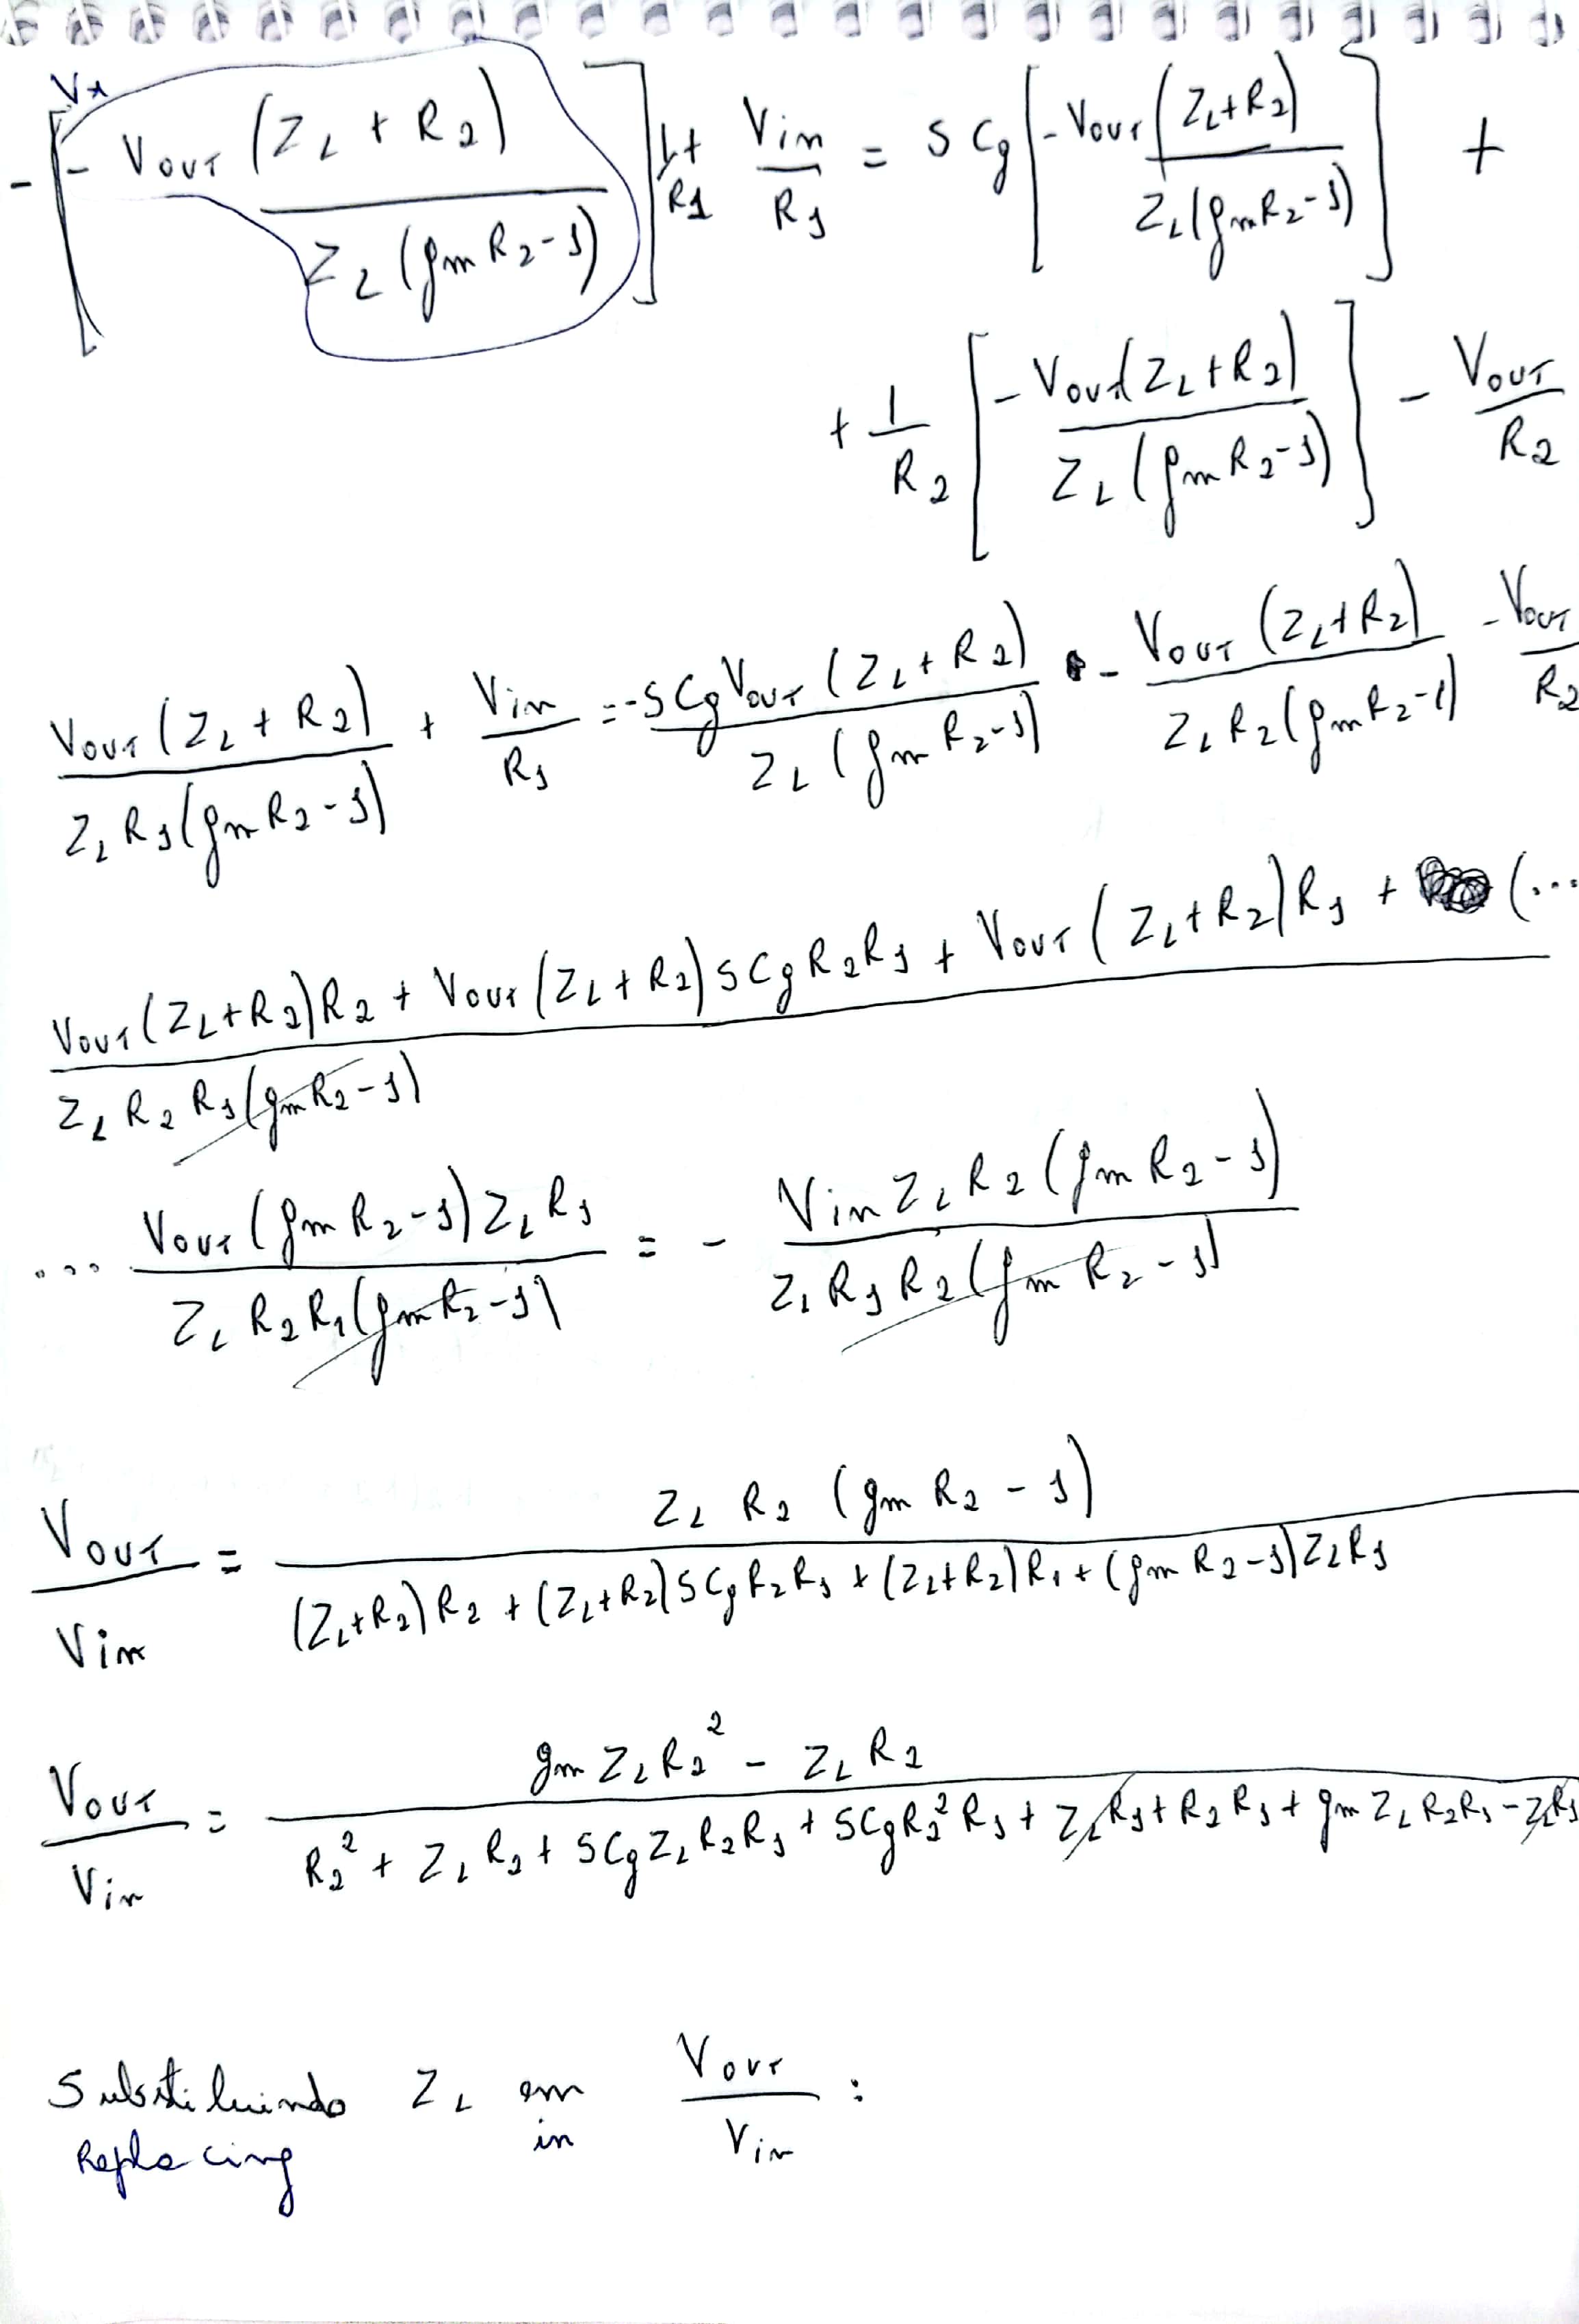 Vx
-[-Vout (ZL + R2) / ZL (gm R2 - 1)] 1/R1 + Vin/R1 = s Cg [-Vout (ZL + R2) / ZL (gm R2 - 1)] +
+ 1/R2 [-Vout (ZL + R2) / ZL (gm R2 - 1)] - Vout/R2
Vout (ZL + R2) / ZL R1 (gm R2 - 1) + Vin/R1 = -s Cg Vout (ZL + R2) / ZL (gm R2 - 1) - Vout (ZL + R2) / ZL R2 (gm R2 - 1) - Vout/R2
Vout (ZL + R2) R2 + Vout (ZL + R2) s Cg R2 R1 + Vout (ZL + R2) R1 + (... / ZL R2 R1 (gm R2 - 1)
... Vout (gm R2 - 1) ZL R1 / ZL R2 R1 (gm R2 - 1) = - Vin ZL R2 (gm R2 - 1) / ZL R1 R2 (gm R2 - 1)
Vout/Vin = ZL R2 (gm R2 - 1) / (ZL + R2) R2 + (ZL + R2) s Cg R2 R1 + (ZL + R2) R1 + (gm R2 - 1) ZL R1
Vout/Vin = gm ZL R2² - ZL R2 / R2² + ZL R2 + s Cg ZL R2 R1 + s Cg R2² R1 + ZL R1 + R2 R1 + gm ZL R2 R1 - ZL R1
Substituindo ZL em Vout/Vin :
Replacing in